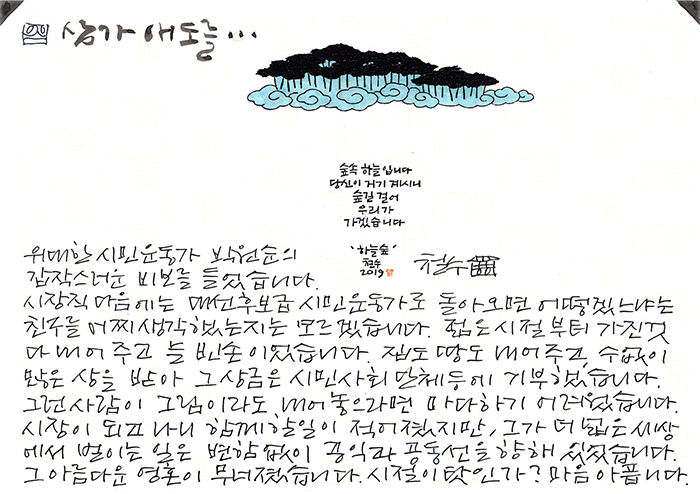 삼가 애도를...
숲속 하늘입니다
당신이 거기 계시니
숲길 걸어
우리가
가겠습니다
'하늘숲'
철수
2019
철수
위대한 시민운동가 박원순의
갑작스러운 비보를 들었습니다.
시장직 다음에는 대선후보급 시민운동가로 돌아오면 어떻겠느냐는
친구를 어찌 생각했는지는 모르겠습니다. 젊은 시절부터 가진것
다 내어 주고 늘 빈손이었습니다. 집도 땅도 내어주고, 수없이
많은 상을 받아 그 상금은 시민사회 단체등에 기부했습니다.
그런 사람이 그림이라도 내어놓으라면 마다하기 어려웠습니다.
시장이 되고 나니 함께 할 일이 적어졌지만, 그가 더 넓은 세상
에서 벌이는 일은 변함없이 공익과 공동선을 향해 있었습니다.
그 아름다운 영혼이 무너졌습니다. 시절이 탓인가? 마음 아픕니다.